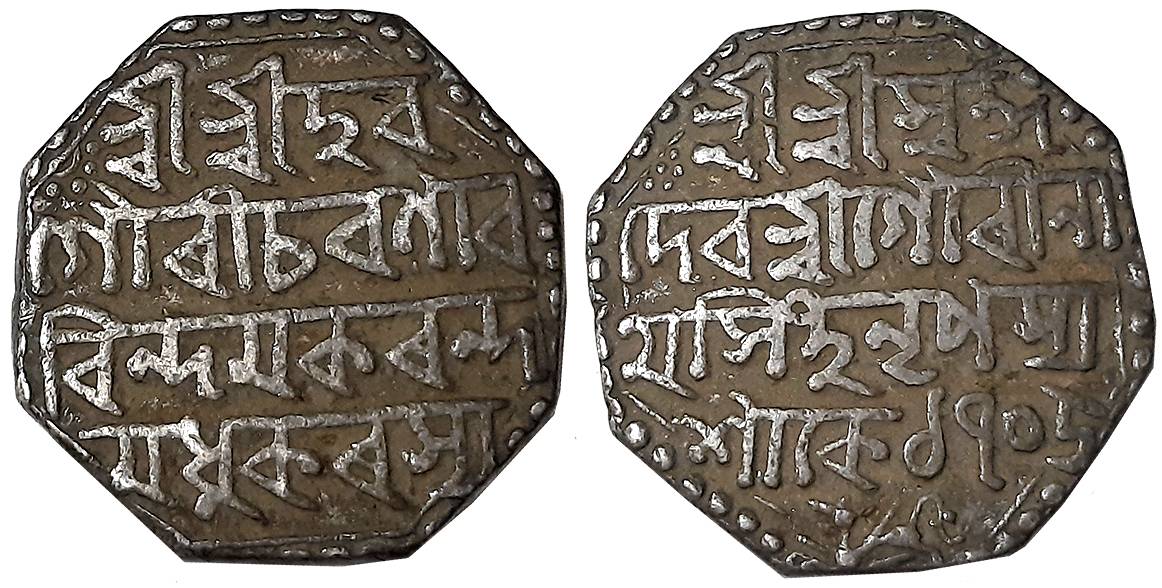 শ্ৰীশ্ৰীহৰ
গৌৰীচৰণাৰ
বিন্দমকৰন্দ
মধুকৰস্য
শ্ৰীশ্ৰীস্বৰ্গ
দেবশ্ৰীগৌৰীনা
থসিংহনৃপস্য
শাকে ১৭০৬